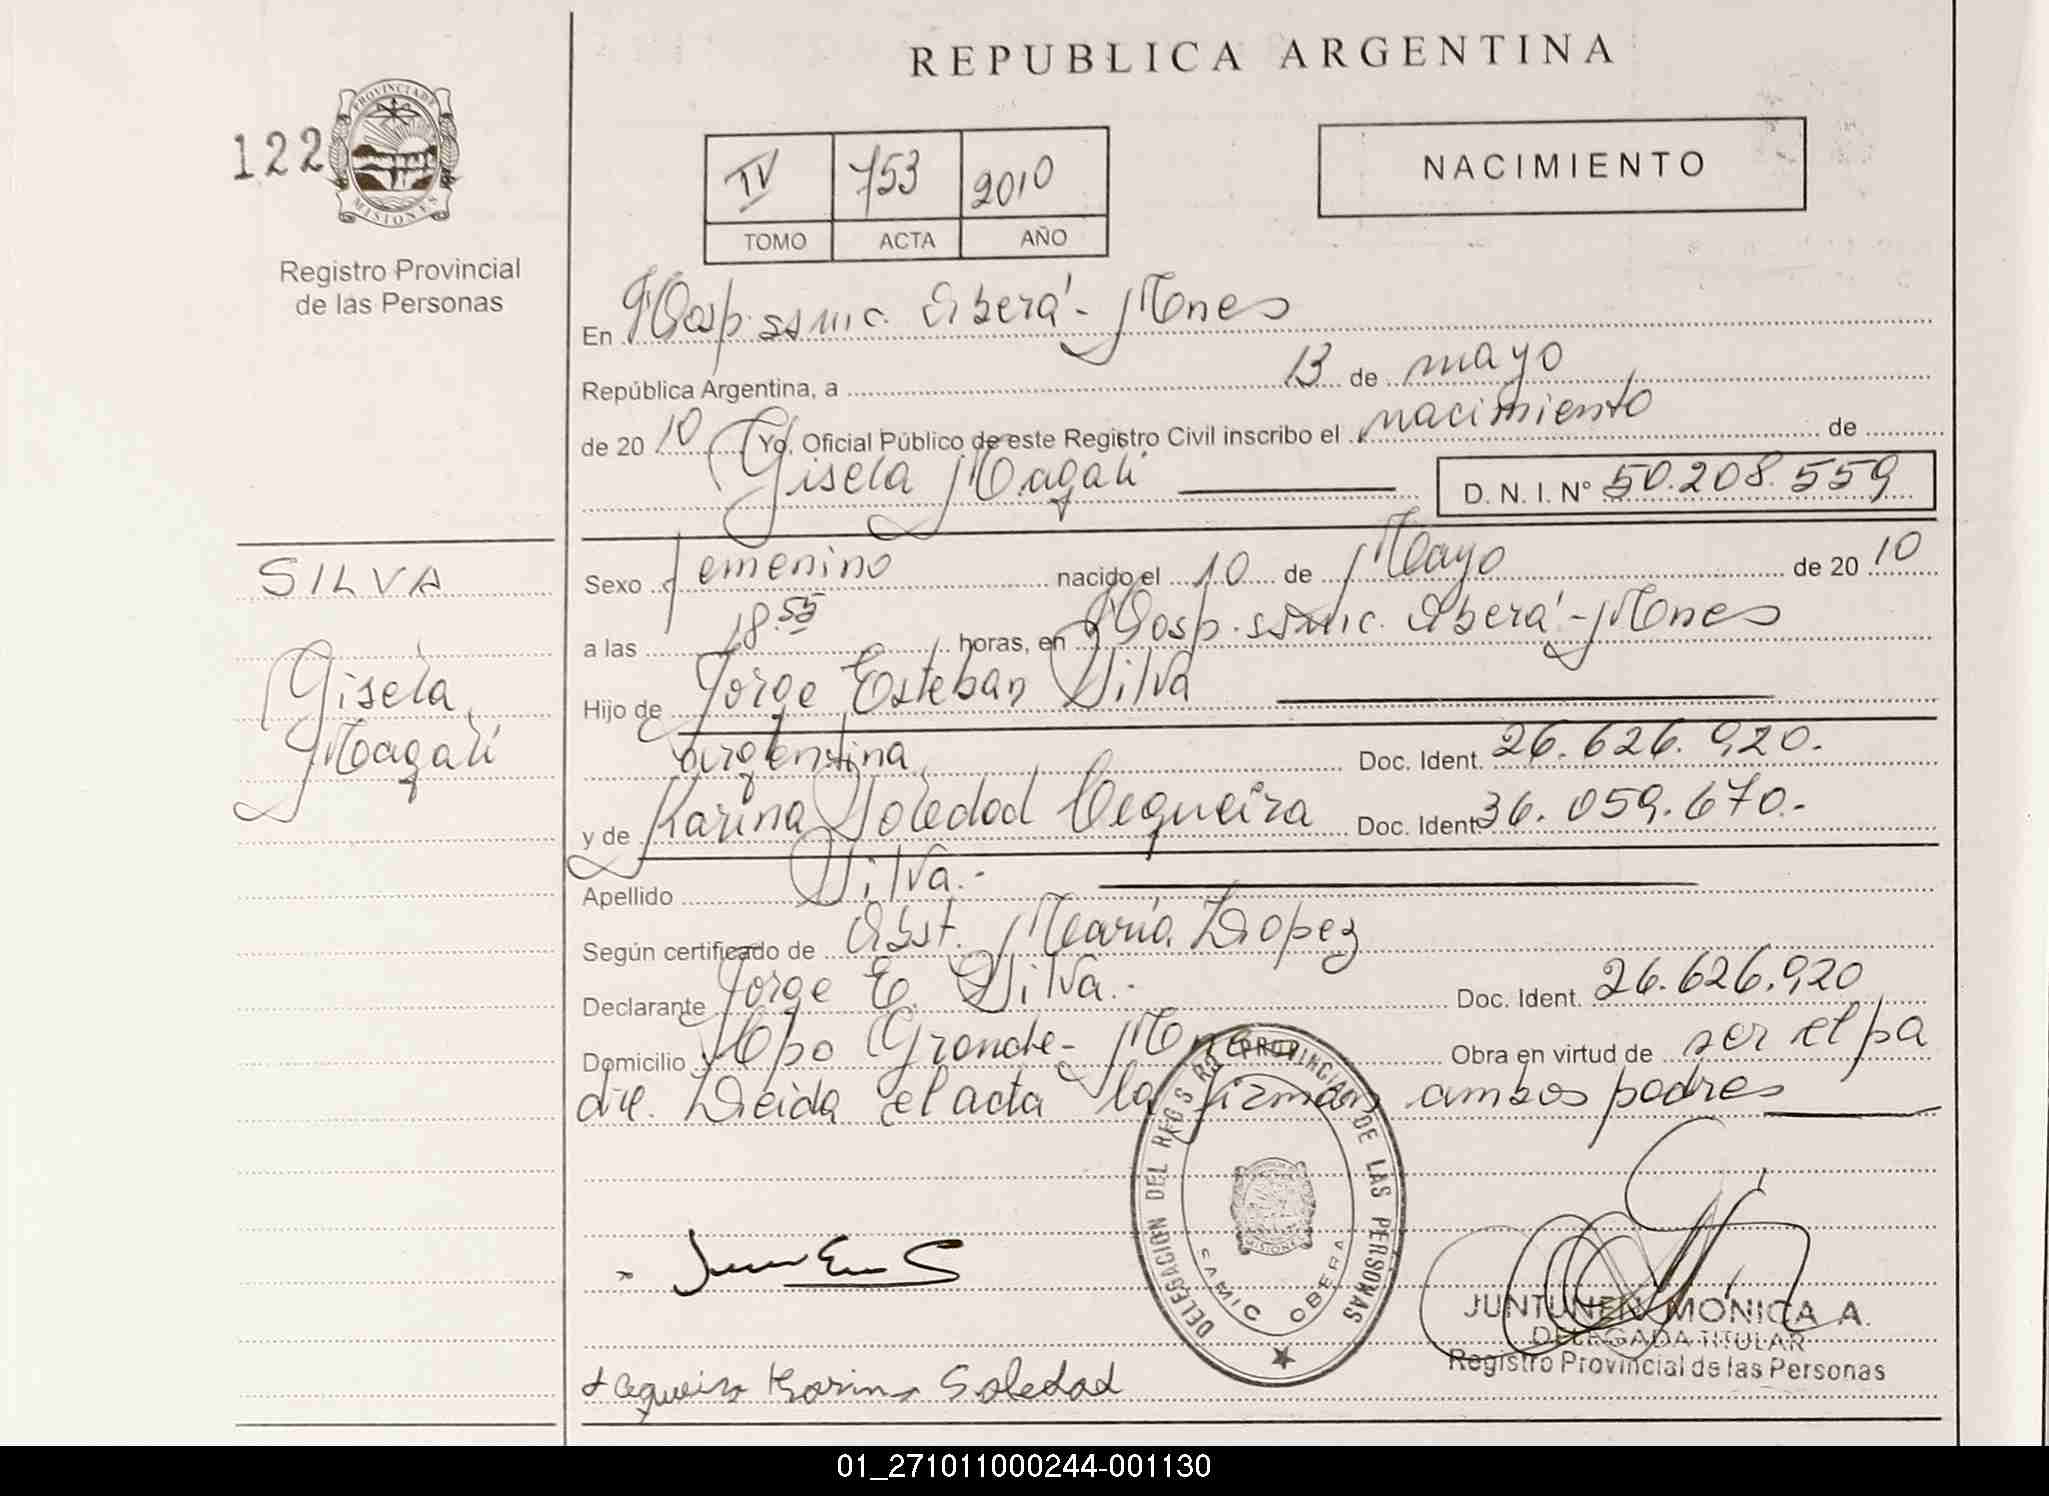 REPUBLICA ARGENTINA
122
PROVINCIA DE
MISIONES
Registro Provincial
de las Personas
IV 753 2010
TOMO ACTA AÑO
NACIMIENTO
En Hosp. SAMIC. Oberá - Mnes
República Argentina, a 13 de mayo
de 2010 Yo, Oficial Público de este Registro Civil inscribo el nacimiento de
Gisela Magali D. N. I. N° 50.208.559
SILVA
Gisela
Magali
Sexo femenino nacido el 10 de Mayo de 2010
a las 18.55 horas, en Hosp. SAMIC. Oberá - Mnes
Hijo de Jorge Esteban Silva
argentina Doc. Ident. 26.626.920.
y de Karina Soledad Cequeira Doc. Ident 36.059.670.-
Apellido Silva.-
Según certificado de Obst. María Lopez
Declarante Jorge E. Silva.- Doc. Ident. 26.626.920
Domicilio Cpo Grande - Mnes Obra en virtud de ser el pa
dre. Leida el acta la firman ambos padres
DELEGACION DEL REGISTRO PROVINCIAL DE LAS PERSONAS
MISIONES
SAMIC OBERA
JUNTUNEN MONICA A.
DELEGADA TITULAR
Registro Provincial de las Personas
Cequeira Karina Soledad
01_271011000244-001130